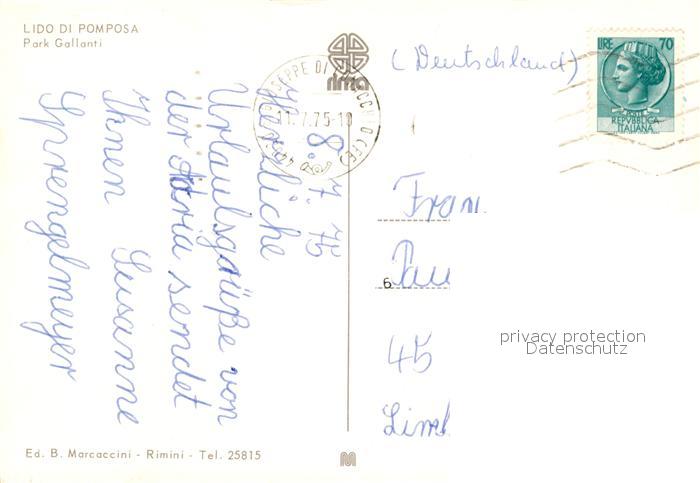 LIDO DI POMPOSA
Park Gallanti
8. 7. 75
Herzliche
Urlaubsgrüße von
der Adria sendet
Ihnen Susanne
Sprengelmeyer
rima
11.7.75-10
(Deutschland)
LIRE 70
POSTE
REPVBBLICA
ITALIANA
6
45
privacy protection
Datenschutz
Ed. B. Marcaccini - Rimini - Tel. 25815
M